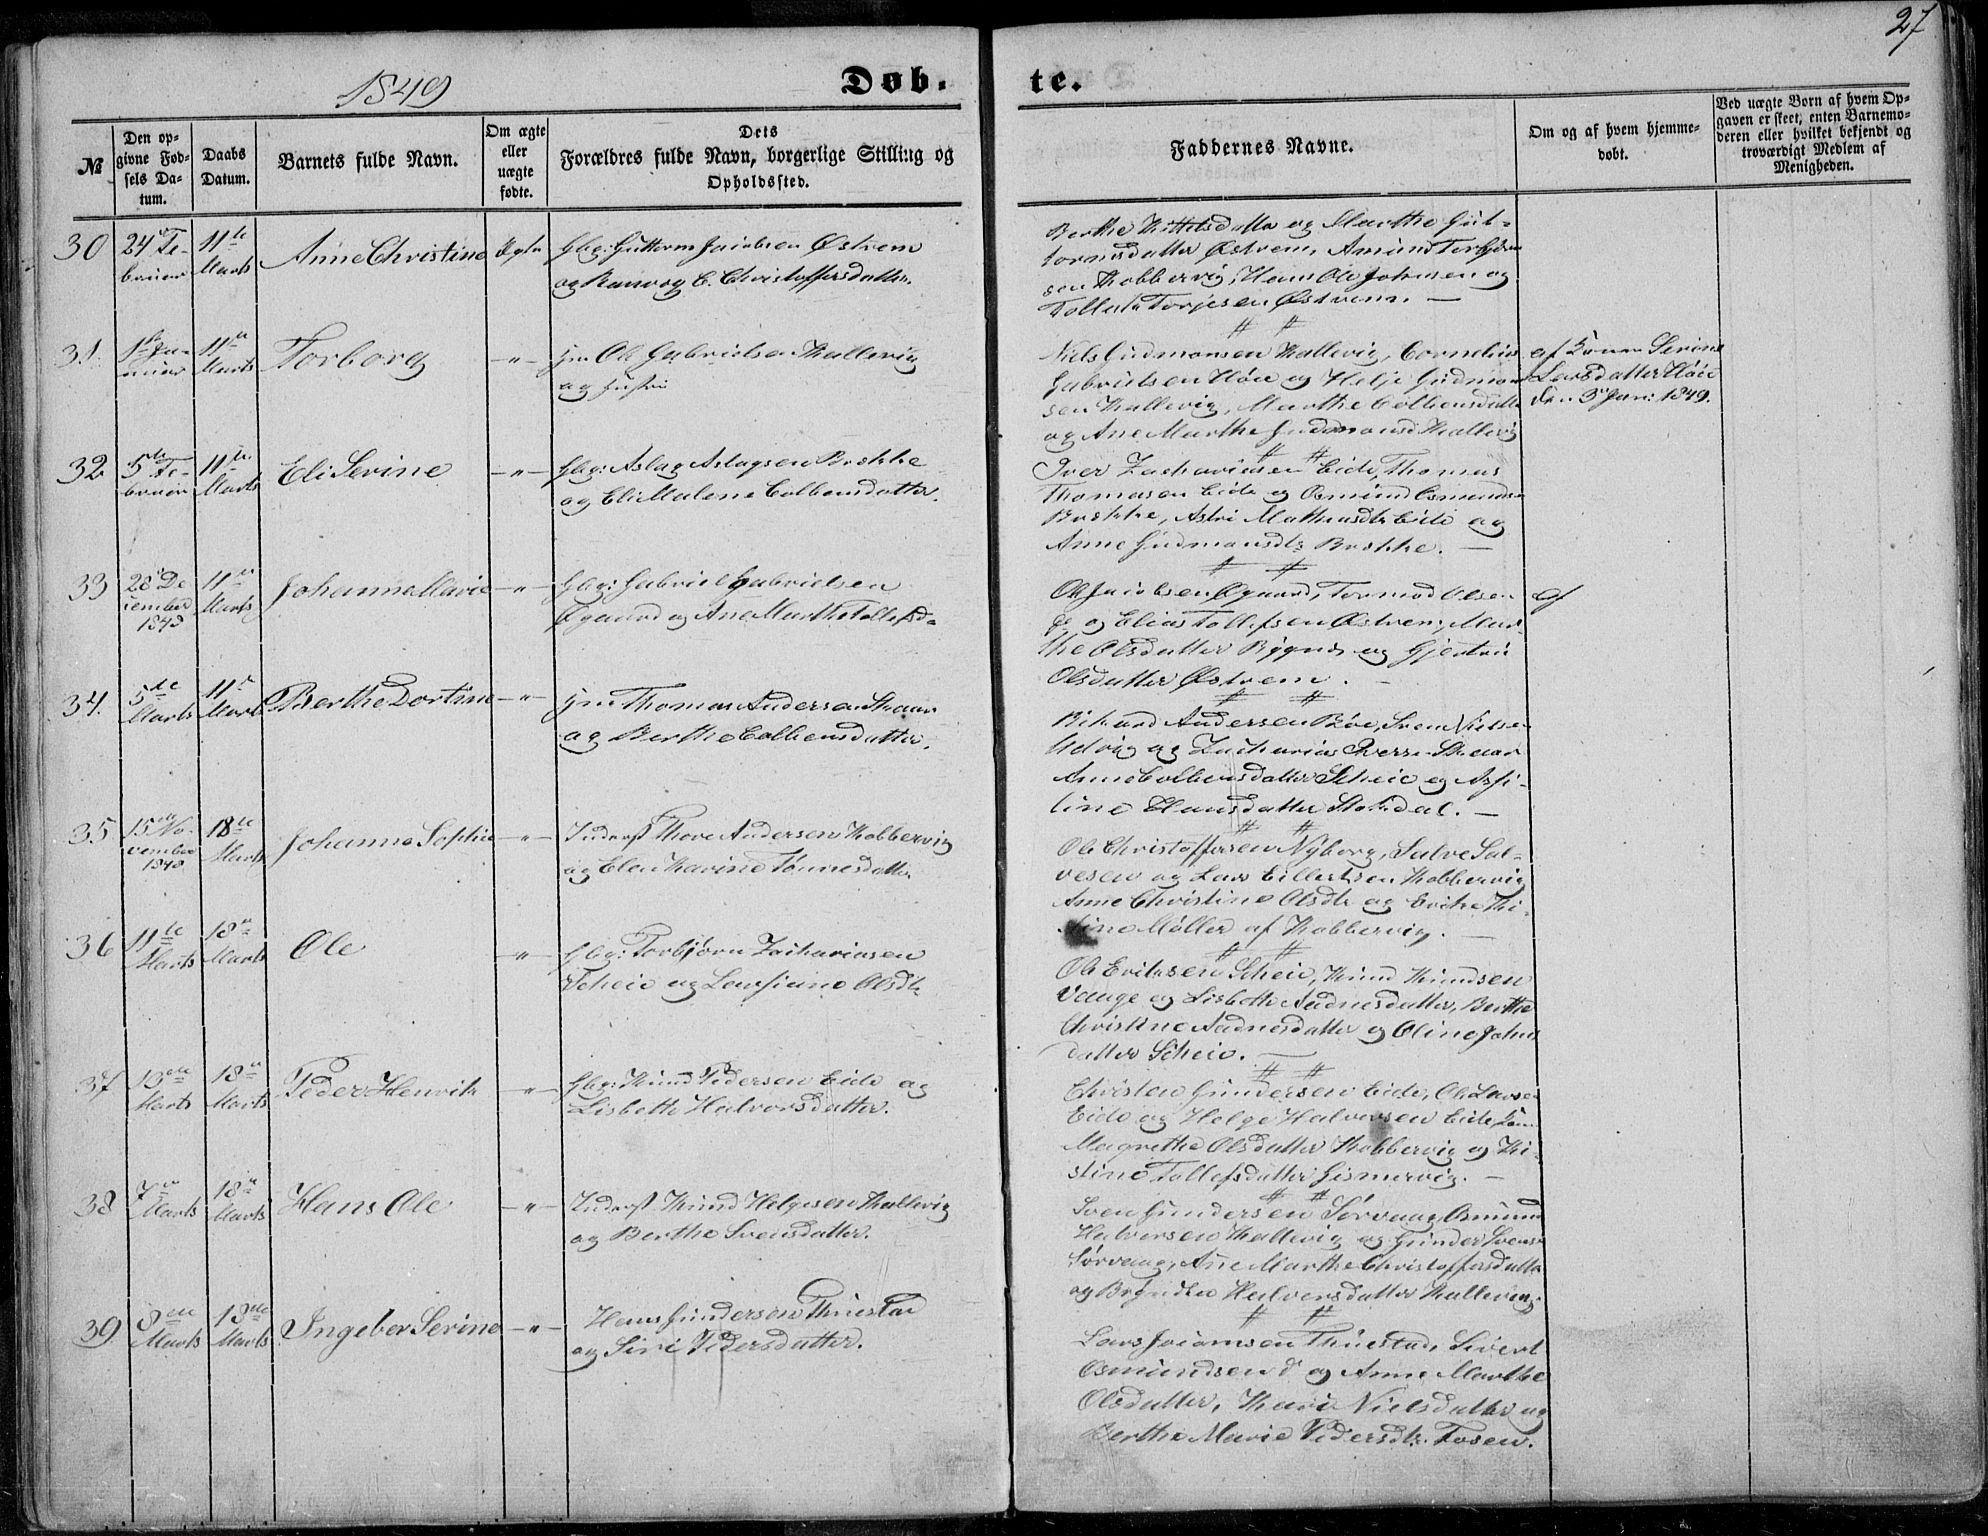 27
1849
Døb-
te.
№
Den op-
givne Fød-
sels Da-
tum.
Daabs
Datum.
Barnets fulde Navn.
Om ægte
eller
uægte
fødte.
Dets
Forældres fulde Navn, borgerlige Stilling og
Opholdssted.
Faddernes Navne.
Om og af hvem hjemme-
døbt.
Ved uægte Børn af hvem Op-
gaven er skeet, enten Barnemo-
deren eller hvilket bekjendt og
troværdigt Medlem af
Menigheden.
30
24 Fe-
bruar
11te
Marts
Anne Christine
Ægte
Gbr: Guttorm Jacobsen Østrem
og Ranvog E. Christoffersdatter.
Berthe Kittelsdatter og Marthe Gut-
tormsdatter Østrem, Amund
sen Kobbervig, Hans Ole Johnsen og
Tollef Torjesen Østrem. —
31.
11te
Marts
Torborg
—"—
Ole Gabrielsen Hallevig
og Hustru
Niels Gudmonsen Hallevig, Cornelius
Gabrielsen Høie og Helje Gudmon
sen Hallevig, Marthe Colbensdatter
og Ane Marthe Gudmonsd Hallevig
af Konen Serine
Larsdatter Høie
den 3 Jan: 1849.
32
5te Fe-
bruar
11te
Marts
Eli Serine
—"—
Gbr: Aslag Aslagsen Brekke
og Eli Malene Colbensdatter.
Iver Zachariasen Eide, Thomas
Thomasen Eide og Osmund Osmunds
Brekke, Astri Mathiasdtr Eide og
Anne Gudmonsdtr Brekke. —
33
28 De
cember
1848
11te
Marts
Johanne Marie
—"—
Gbr: Gabriel Gabrielsen
Øgaard og Ane Marthe Tollefsd=
Ole Jacobsen Øgaard, Tormod Olsen
og Elias Tollefsen Østrem, Mar-
the Olsdatter Bygnes og Gjertrue
Olsdatter Østrem. —
af
34.
5te
Marts
11te
Marts
Berthe Dortine
—"—
Thomas Andersen Skaar
og Berthe Colbensdatter.
Rikard Andersen Bøe, Sven Nielsen
Udvig og Zacharias Iversen Skaar
Anne Colbensdatter Scheie og Asse-
line Hansdatter Stokdal. —
35
15 No-
vember
1848
18te
Marts
Johanne Sophie
—"—
Inderst Thore Andersen Kobbervig
og Elen Karine Tønnesdatter
Ole Christoffersen Nyborg, Salve Sal-
vesen og Lars Eillertsen Kobbervig
Anne Christine Olsdtr og
Møller af Kobbervig. —
36
11te
Marts
18
Marts
Ole
—"—
Gbr: Torbjørn Zachariasen
Scheie og Larsine Olsdtr
Ole Eriksen Scheie, Knud Knudsen
Vange og Lisbeth Aadnesdatter, Berthe
Christine Aadnesdatter og Oline Johns
datter Scheie. —
37
13
Marts
18
Marts
Peder Henrik
—"—
Gbr: Knud Pedersen Eide og
Lisbeth Halvorsdatter.
Christen Gundersen Eide, Ole Larsen
Eide og Helge Halvorsen Eide,
Magrethe Olsdatter Kobbervig og Ki-
stine Tollefsdatter Gismervig. —
38
7
Marts
18
Marts
Hans Ole
—"—
Inderst Knud Helgesen Hallevig
og Berthe Svensdatter.
Sven Gundersen Sørvaag, Osmund
Halvorsen Hallevig og Gunder Svens
Sørvaag, Ane Marthe Christoffersdatter
og Halvorsdatter Hallevig
39
8de
Marts
18de
Marts
Ingeber Serine
—"—
Hans Gundersen Thuestad
og Siri Pedersdatter.
Lars Thuestad, Sivert
Osmundsen og Anne Marthe
Olsdatter, Kari Nielsdatter og
Berthe Marie Pedersdtr. Fosen.